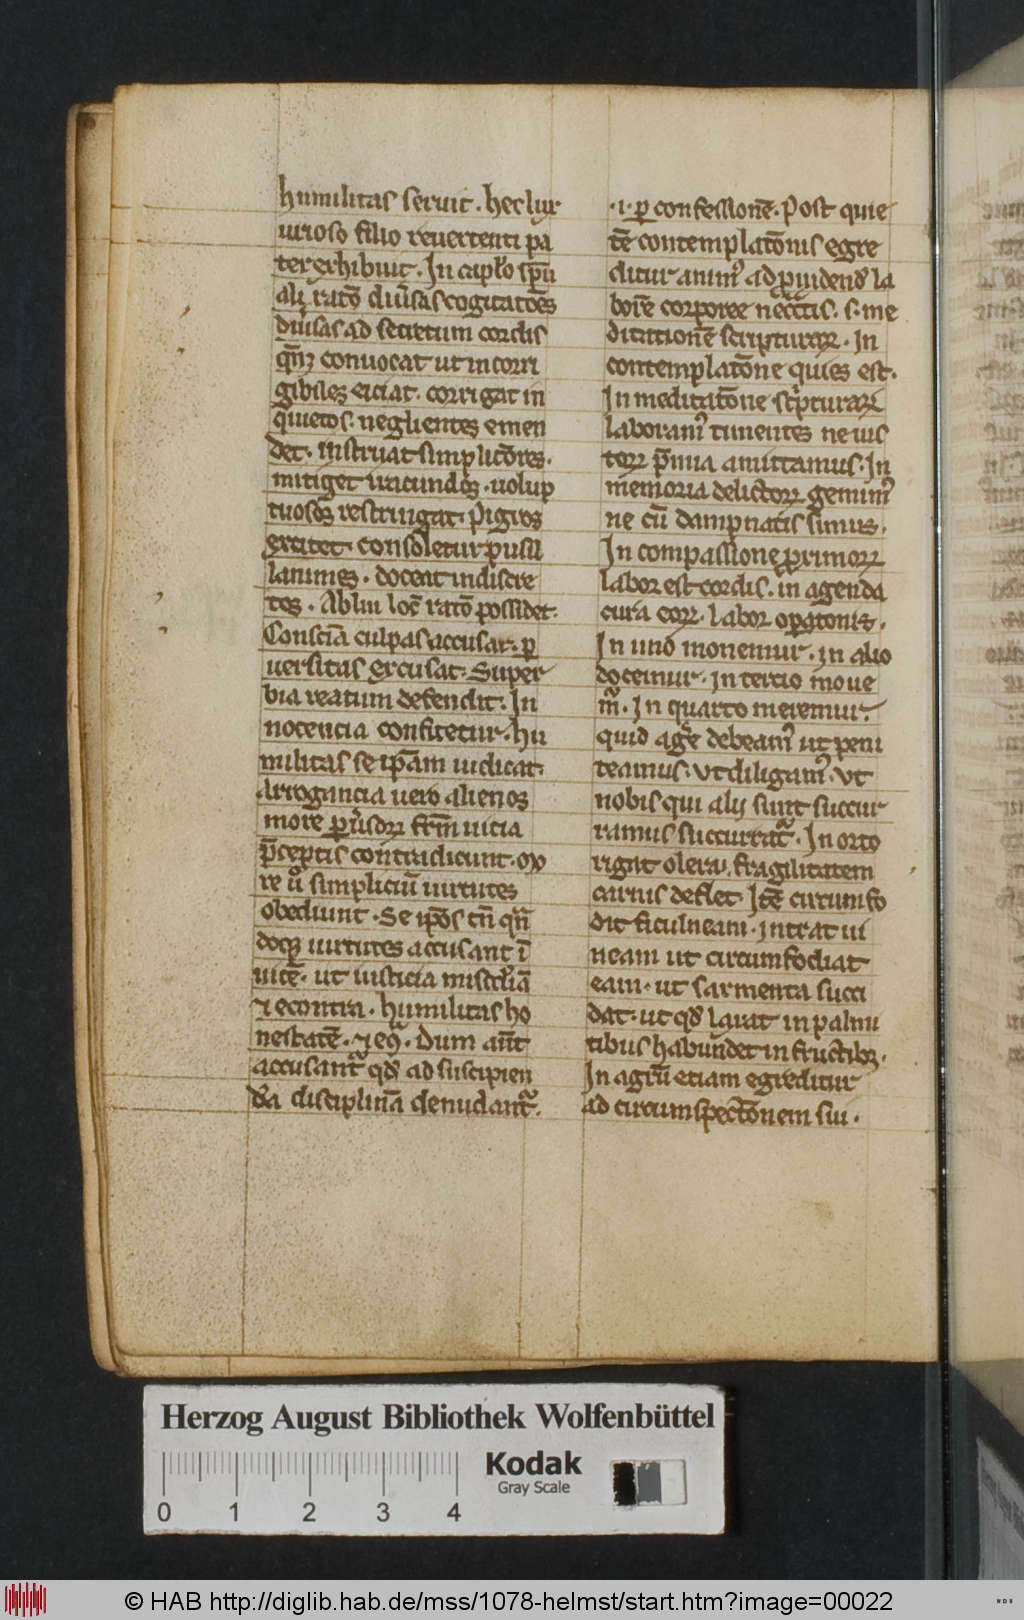 humilitas seruit . hec luxu
urioso filio reuertenti pa
ter exhibuit . In capl'o sp̄u
ali ratō diu'sas cogitatōes
diu'sas ad secretum cordis
conuocat ut incorri
gibiles eiciat . corrigat in
quietos . negligentes emen
det . instruat simplicōres .
mitiget iracundos . uolup
tuosos restringat . Pigros
excitet . consoletur pusil
lanimes . doceat indiscre
tos . Ablui loc' ratō possidet .
Consciā culpas accusat . p
uersitas excusat . Super
bia reatum defendit . In
nocencia confitetur . hu
militas se ip̄am iudicat .
Arrogancia uero alienos
more p uicia
p̄ceptis contradicunt . ex
re u° simpliciū uirtutes
obediunt . Se ip̄os tn̄ qn̄
doq; uirtutes accusant ī
uicē . ut iusticia mis'c'diā
⁊ econtra . humilitas ho
nestatē . ⁊ eꝯ . Dum aūt
accusant' qd' ad suscipien
d'a disciplinā denudant' .
. i . p confessionē . Post quie
tē contemplatōnis egre
ditur anim' ad p'uidend' la
borē corporee nec̄c̄tis . s . me
ditationē scripturaꝝ . In
contemplatōne quies est .
In meditatōne sc'pturaꝝ
laboram' timentes ne ius
toꝝ p̄mia amittamus . In
memoria delictoꝝ gemim'
ne cū dampnatis simus .
In compassione p'ximoꝝ
labor est cordis . in agenda
cura eoꝝ . labor op'ationis .
In uno monemur . in alio
docemur . in tercio moue
m̄ . In quarto meremur .
quid ag'e debeam' ut peni
teamus . Ut diligam' . Ut
nobis qui alij sunt succur
ramus succurrat' . In orto
rigat olera . fragilitatem
carnis deflet . Itē circumfo
dit ficulneam . intrat ui
neam ut circumfodiat
eam . ut sarmenta succi
dat . ut qd' lauat in palmi
tibus habundet in fructibꝫ .
In agrū etiam egreditur
ad circumspectōnem sui .
Herzog August Bibliothek Wolfenbüttel
Kodak
Gray Scale
0 1 2 3 4
© HAB http://diglib.hab.de/mss/1078-helmst/start.htm?image=00022